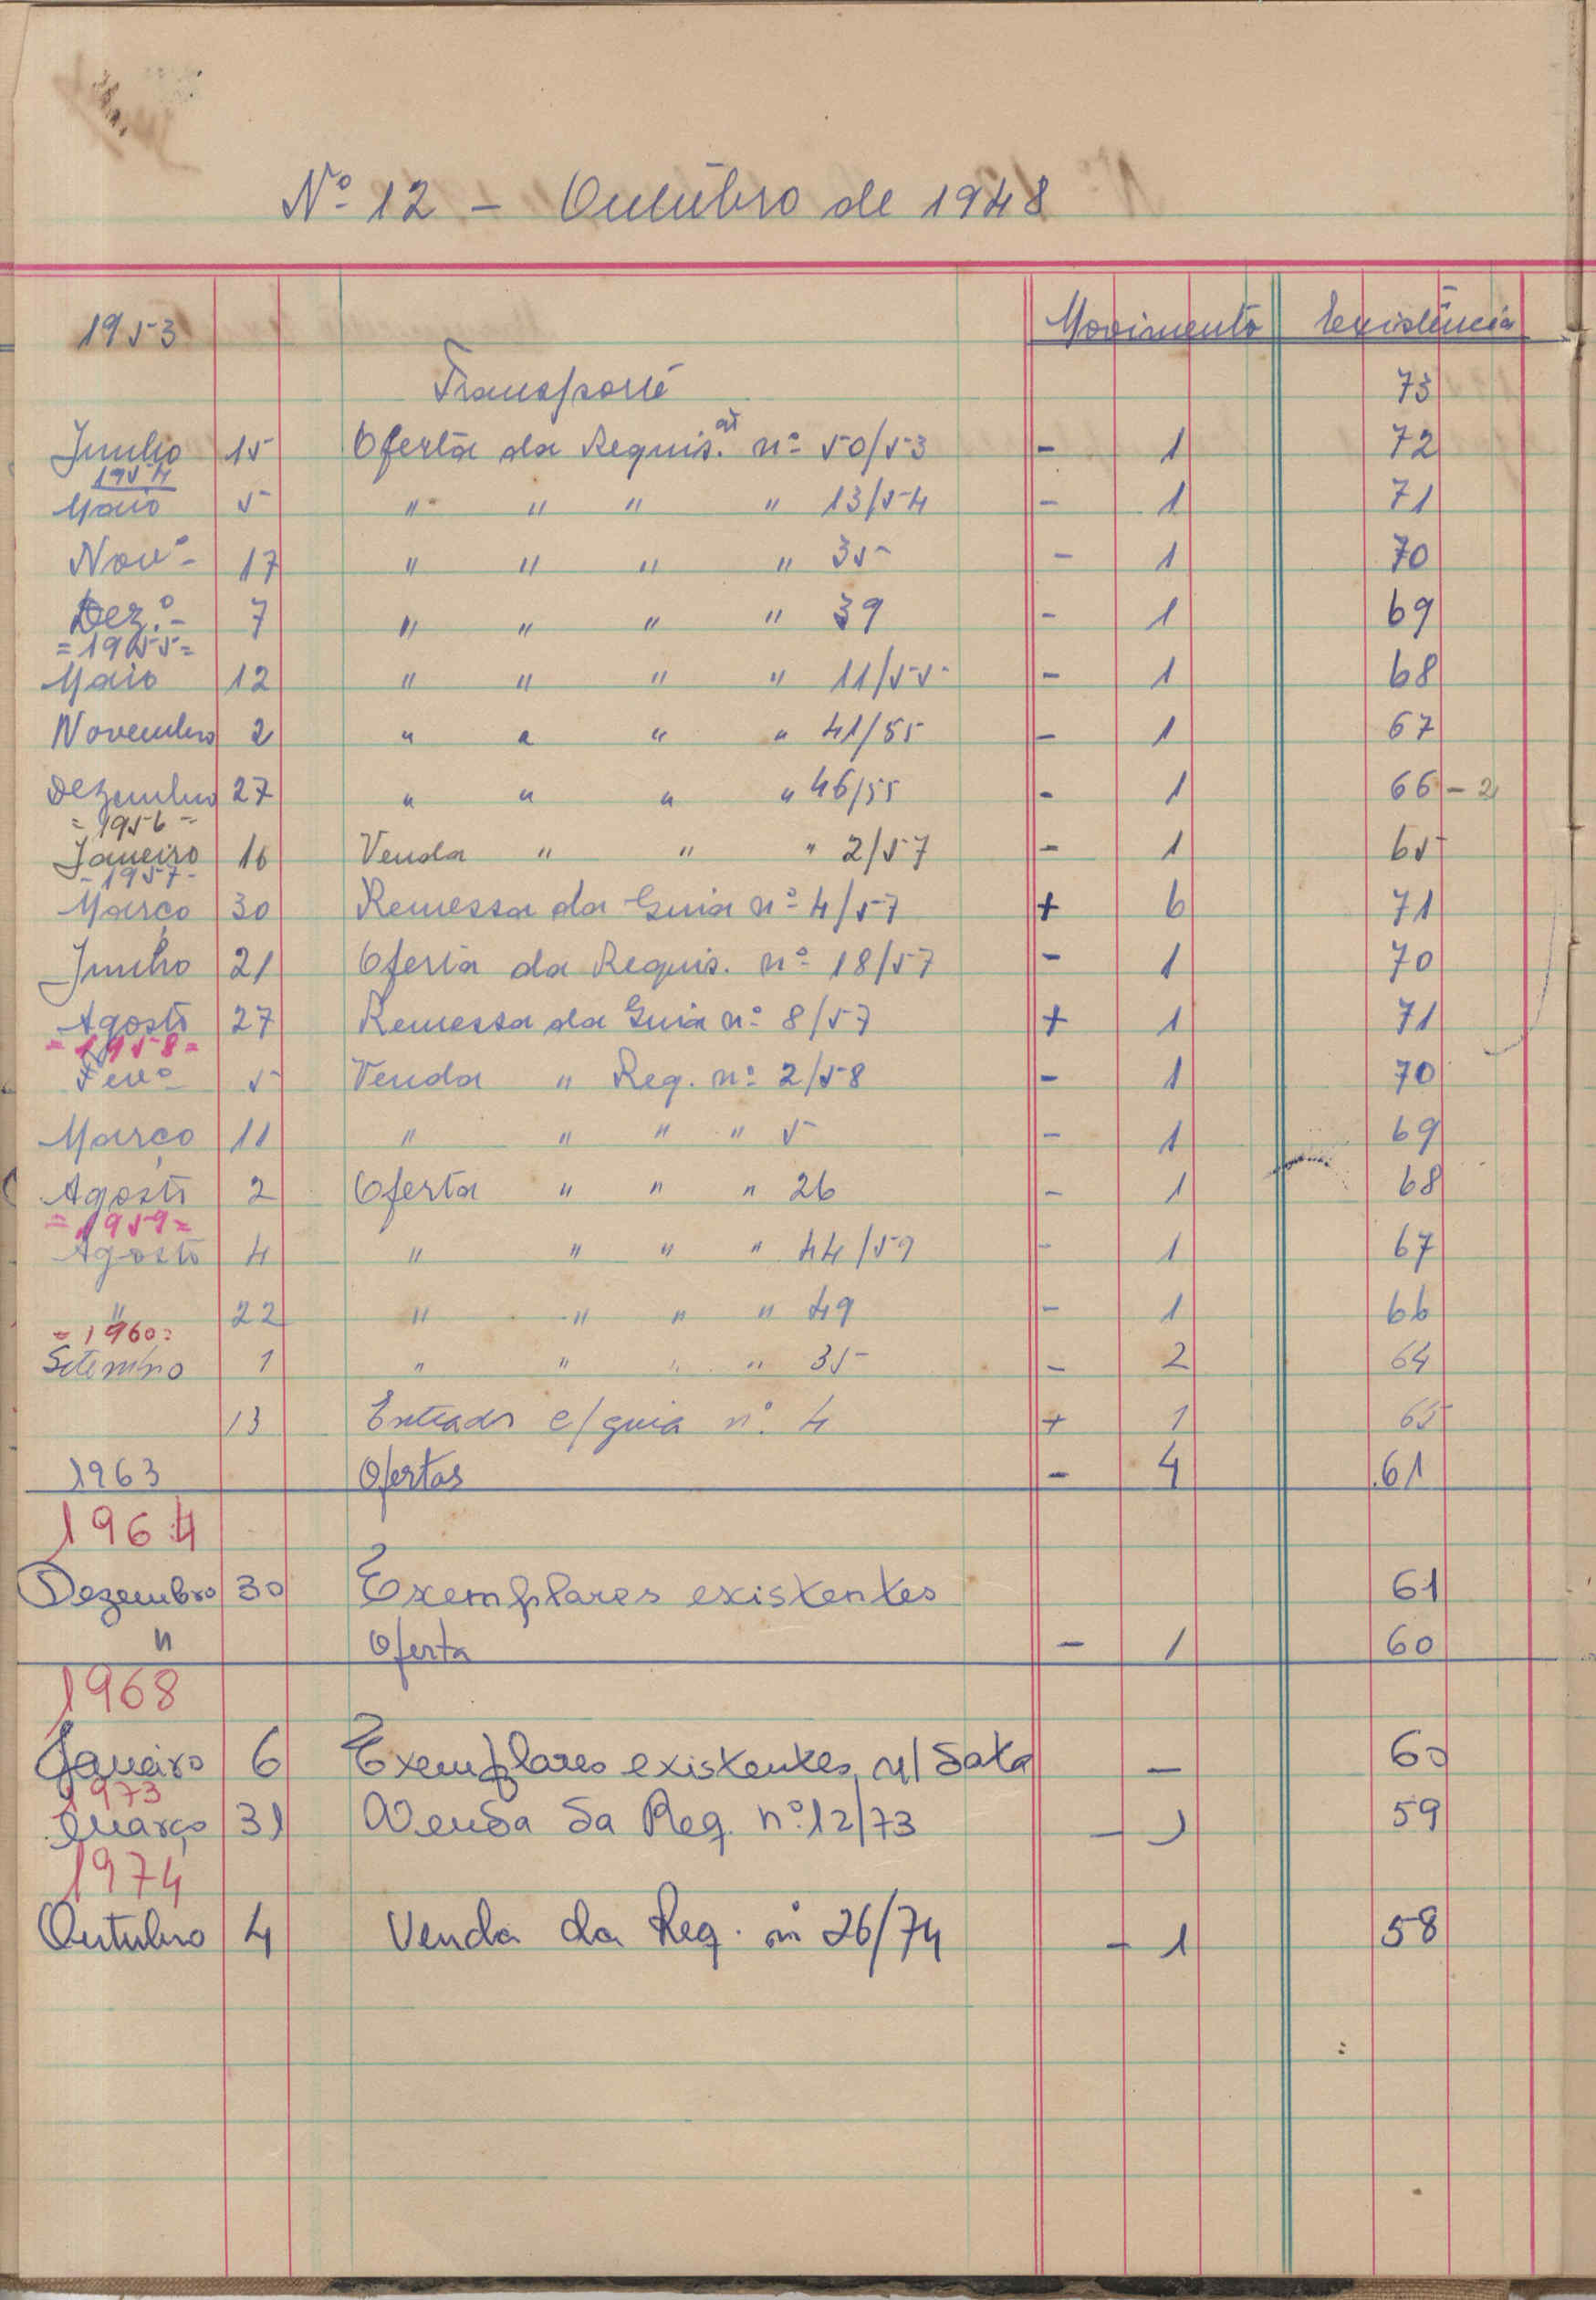 Nº 12 - Outubro de 1948
1953 Movimento Existência
Transporte 73
Junho 15 Oferta da Requis.at nº 50/53 - 1 72
1954
Maio 5 " " " " 13/54 - 1 71
Novº 17 " " " " 35 - 1 70
Dez.º 7 " " " " 39 - 1 69
= 1955 =
Maio 12 " " " " 11/55 - 1 68
Novembro 2 " " " " 41/55 - 1 67
Dezembro 27 " " " " 46/55 - 1 66 - 2
= 1956 =
Janeiro 16 Venda " " " 2/57 - 1 65
- 1957 -
Março 30 Remessa da Guia nº 4/57 + 6 71
Junho 21 Oferta da Requis. nº 18/57 - 1 70
Agosto 27 Remessa da Guia nº 8/57 + 1 71
= 1958 =
Fevº 5 Venda " Req. nº 2/58 - 1 70
Março 11 " " " " 5 - 1 69
Agosto 2 Oferta " " " 26 - 1 68
= 1959 =
Agosto 4 " " " " 44/59 - 1 67
" 22 " " " " 49 - 1 66
= 1960 =
Setembro 1 " " " " 35 - 2 64
13 Entrada c/guia nº 4 + 1 65
1963 Ofertas - 4 61
1964
Dezembro 30 Exemplares existentes 61
" Oferta - 1 60
1968
Janeiro 6 Exemplares existentes n/ data - 60
1973
Março 31 Venda da Req. nº 12/73 - 1 59
1974
Outubro 4 Venda da Req. nº 26/74 - 1 58